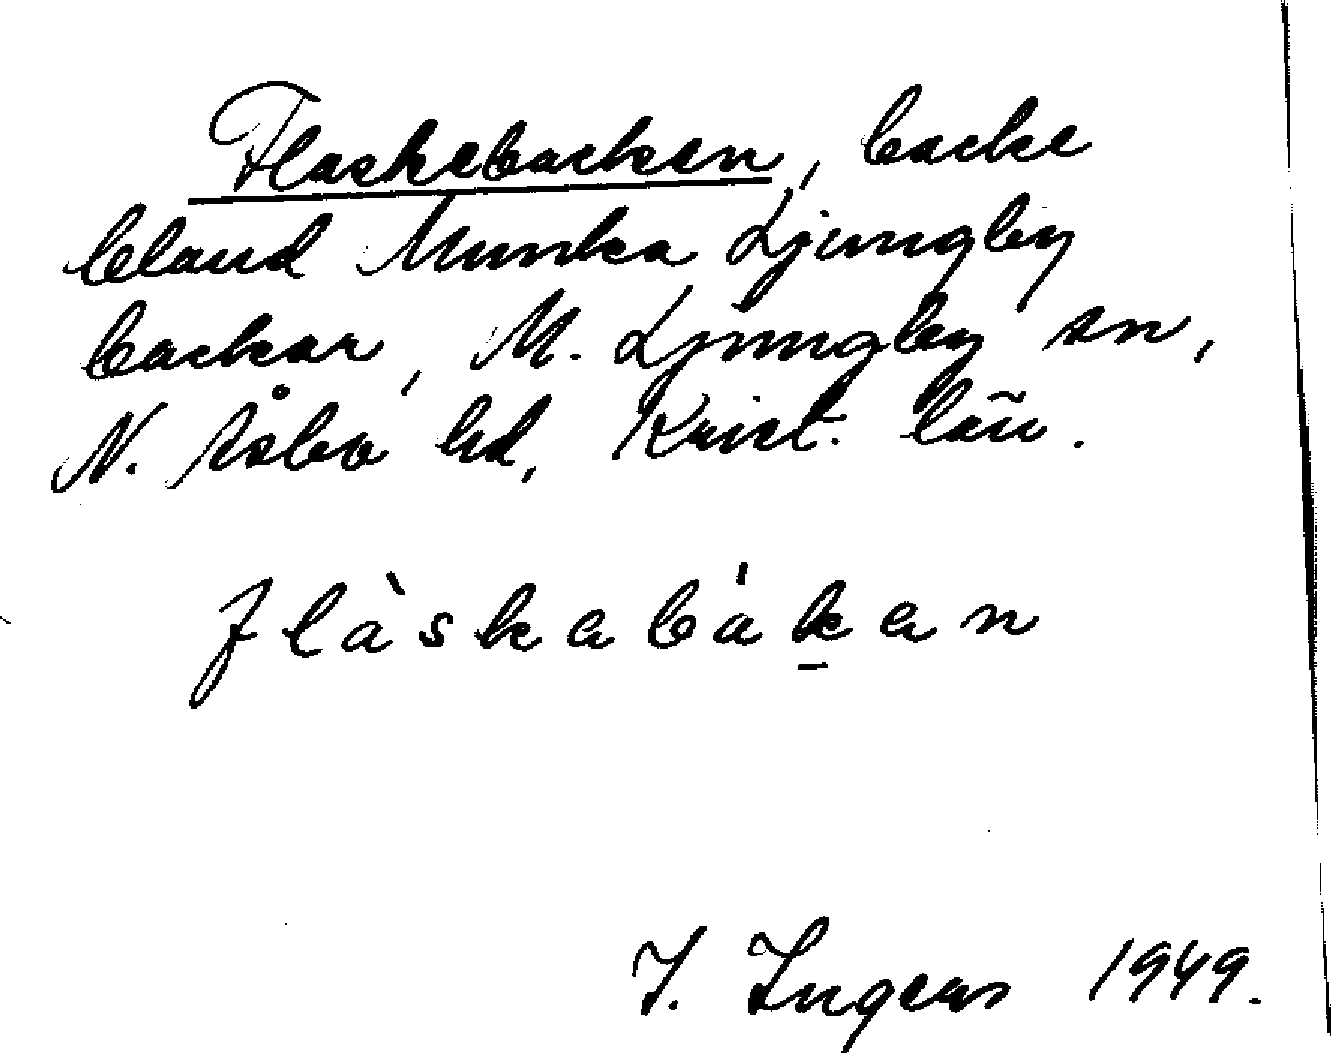 Flaskebacken, backe
bland Munka Ljungby
backar, M. Ljungby sn,
N. Åsbo hd, Krist. län.
flàskabákan
I. Ingers 1949.